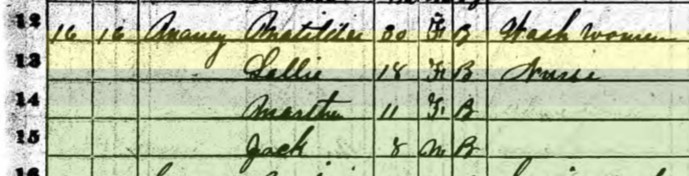 12 16 16 Ananey Matilda 30 F B Wash women
13 Sallie 18 F B Nurse
14 Martha 11 F B
15 Jack 8 M B
16